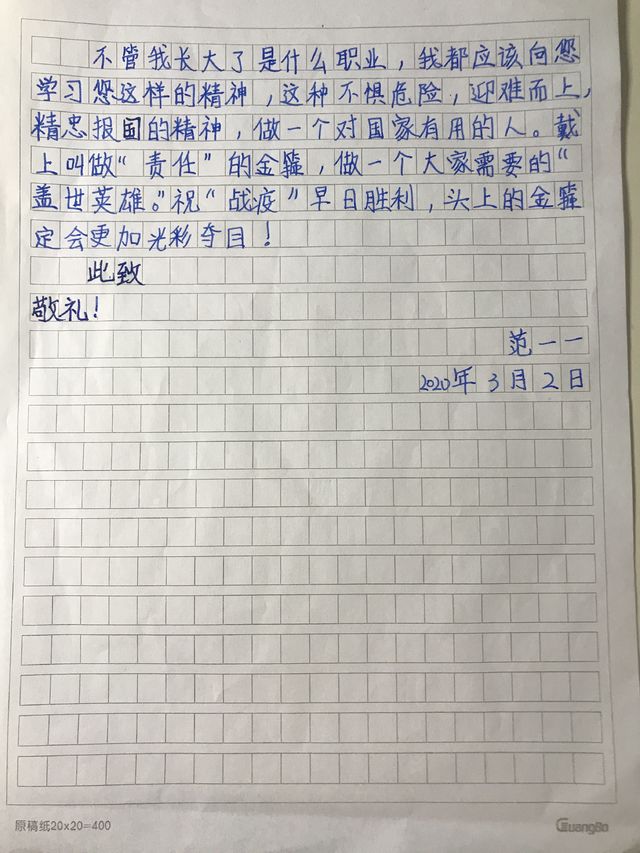 不管我长大了是什么职业，我都应该向您
学习您这样的精神，这种不惧危险，迎难而上，
精忠报国的精神，做一个对国家有用的人。戴
上叫做“责任”的金箍，做一个大家需要的“
盖世英雄。”祝“战疫”早日胜利，头上的金箍
定会更加光彩夺目！
此致
敬礼！
范一一
2020年3月2日
原稿纸20x20=400
GuangBo